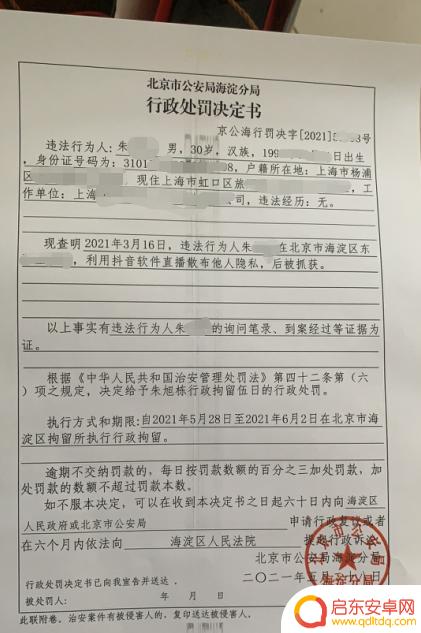 北京市公安局海淀分局
行政处罚决定书
京公海行罚决字[2021]5 3号
违法行为人:朱 男,30岁,汉族,199 日出生
,身份证号码为:3101 8,户籍所在地:上海市杨浦
区 ,现住上海市虹口区旅 ,工
作单位:上海 司,违法经历:无。
现查明2021年3月16日,违法行为人朱 在北京市海淀区东
,利用抖音软件直播散布他人隐私,后被抓获。
以上事实有违法行为人朱 的询问笔录、到案经过等证据为
证。
根据《中华人民共和国治安管理处罚法》第四十二条第(六)
项之规定,决定给予朱旭栋行政拘留伍日的行政处罚。
执行方式和期限:自2021年5月28日至2021年6月2日在北京市海
淀区拘留所执行行政拘留。
逾期不交纳罚款的,每日按罚款数额的百分之三加处罚款,加
处罚款的数额不超过罚款本数。
如不服本决定,可以在收到本决定书之日起六十日内向海淀区
人民政府或北京市公安局 申请行政复议或者
在六个月内依法向 海淀区人民法院 提起行政诉讼
北京市公安局海淀分局
二〇二一年五月 八日
行政处罚决定书已向我宣告并送达。
被处罚人: 年 月 日
此联附卷。治安案件有被侵害人的,复印送达被侵害人。
启东安卓网
www.qdltdq.com